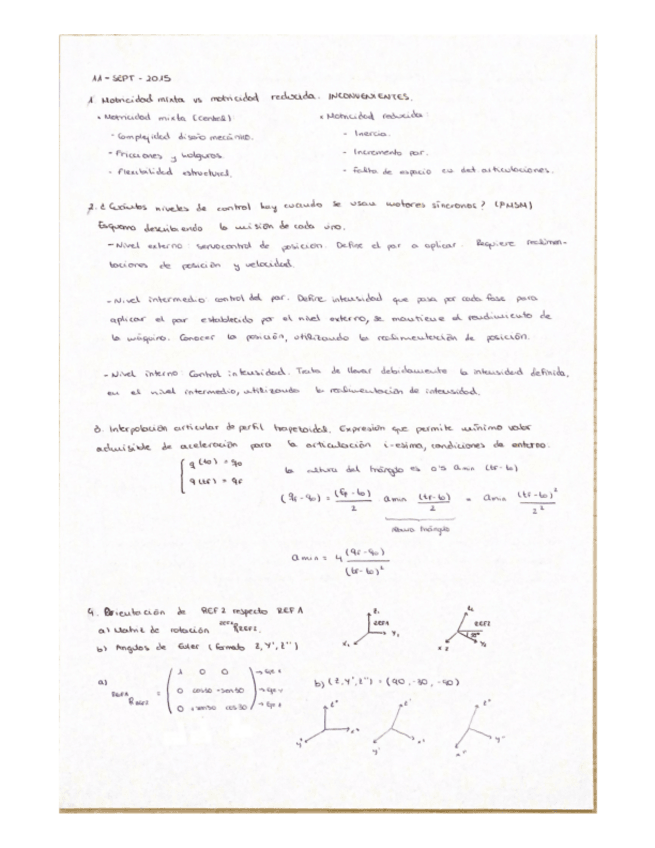 11 - SEPT - 2015
1. Motricidad mixta vs motricidad reducida. INCONVENIENTES.
• Motricidad mixta (central):
- Complejidad diseño mecánico.
- Fricciones y holguras.
- Flexibilidad estructural.
• Motricidad reducida:
- Inercia.
- Incremento par.
- Falta de espacio en det articulaciones.
2. ¿Cuántos niveles de control hay cuando se usan motores síncronos? (PMSM)
Esquema describiendo la misión de cada uno.
- Nivel externo: servocontrol de posición. Define el par a aplicar. Requiere realimen-
taciones de posición y velocidad.
- Nivel intermedio: control del par. Define intensidad que pasa por cada fase para
aplicar el par establecido por el nivel externo, se mantiene el rendimiento de
la máquina. Conocer la posición, utilizando la realimentación de posición.
- Nivel interno: Control intensidad. Trata de llevar debidamente la intensidad definida,
en el nivel intermedio, utilizando la realimentación de intensidad.
3. Interpolación articular de perfil trapezoidal. Expresión que permite mínimo valor
admisible de aceleración para la articulación i-esima, condiciones de entorno.
q (t0) = q0
q (tf) = qf
la altura del triángulo es 0's amin (tf - t0)
(qf - q0) = (tf - t0) / 2 amin (tf - t0) / 2 = amin (tf - t0)² / 2²
altura triángulo
amin = 4 (qf - q0) / (tf - t0)²
4. Orientación de REF2 respecto REFA
a) Matriz de rotación REFA R REF2.
b) Angulos de Euler (formato Z, Y', Z'')
a) REFA R REF2 =
1 0 0 → eje x
0 cos30 -sen30 → eje y
0 sen30 cos30 → eje z
b) (Z, Y', Z'') = (90, -30, -90)